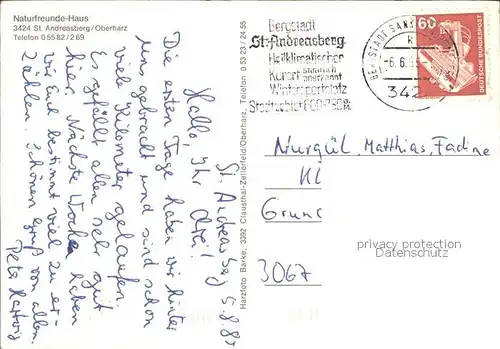 Naturfreunde-Haus
3424 St. Andreasberg/Oberharz
Telefon 0 55 82/2 69
St. Andreasberg
Hallo, Ihr drei!
Die ersten Tage haben wir hinter
uns gebracht und sind schon
viele Kilometer gelaufen.
Es gefällt allen sehr gut
hier. Nächste Woche haben
wir Euch bestimmt viel zu er-
zählen. Schönen Gruß von allen.
Peter Hartwig
Harzfoto Barke, 3392 Clausthal-Zellerfeld/Oberharz, Telefon 0 53 23 / 24 55
Bergstadt
St. Andreasberg
Heilklimatischer
Kurort staatlich anerkannt
Wintersportplatz
BERGSTADT SANKT
k
342
60
DEUTSCHE BUNDESPOST
Nurgül, Matthias, Fadine
Kl
Grunc
3067
privacy protection
Datenschutz